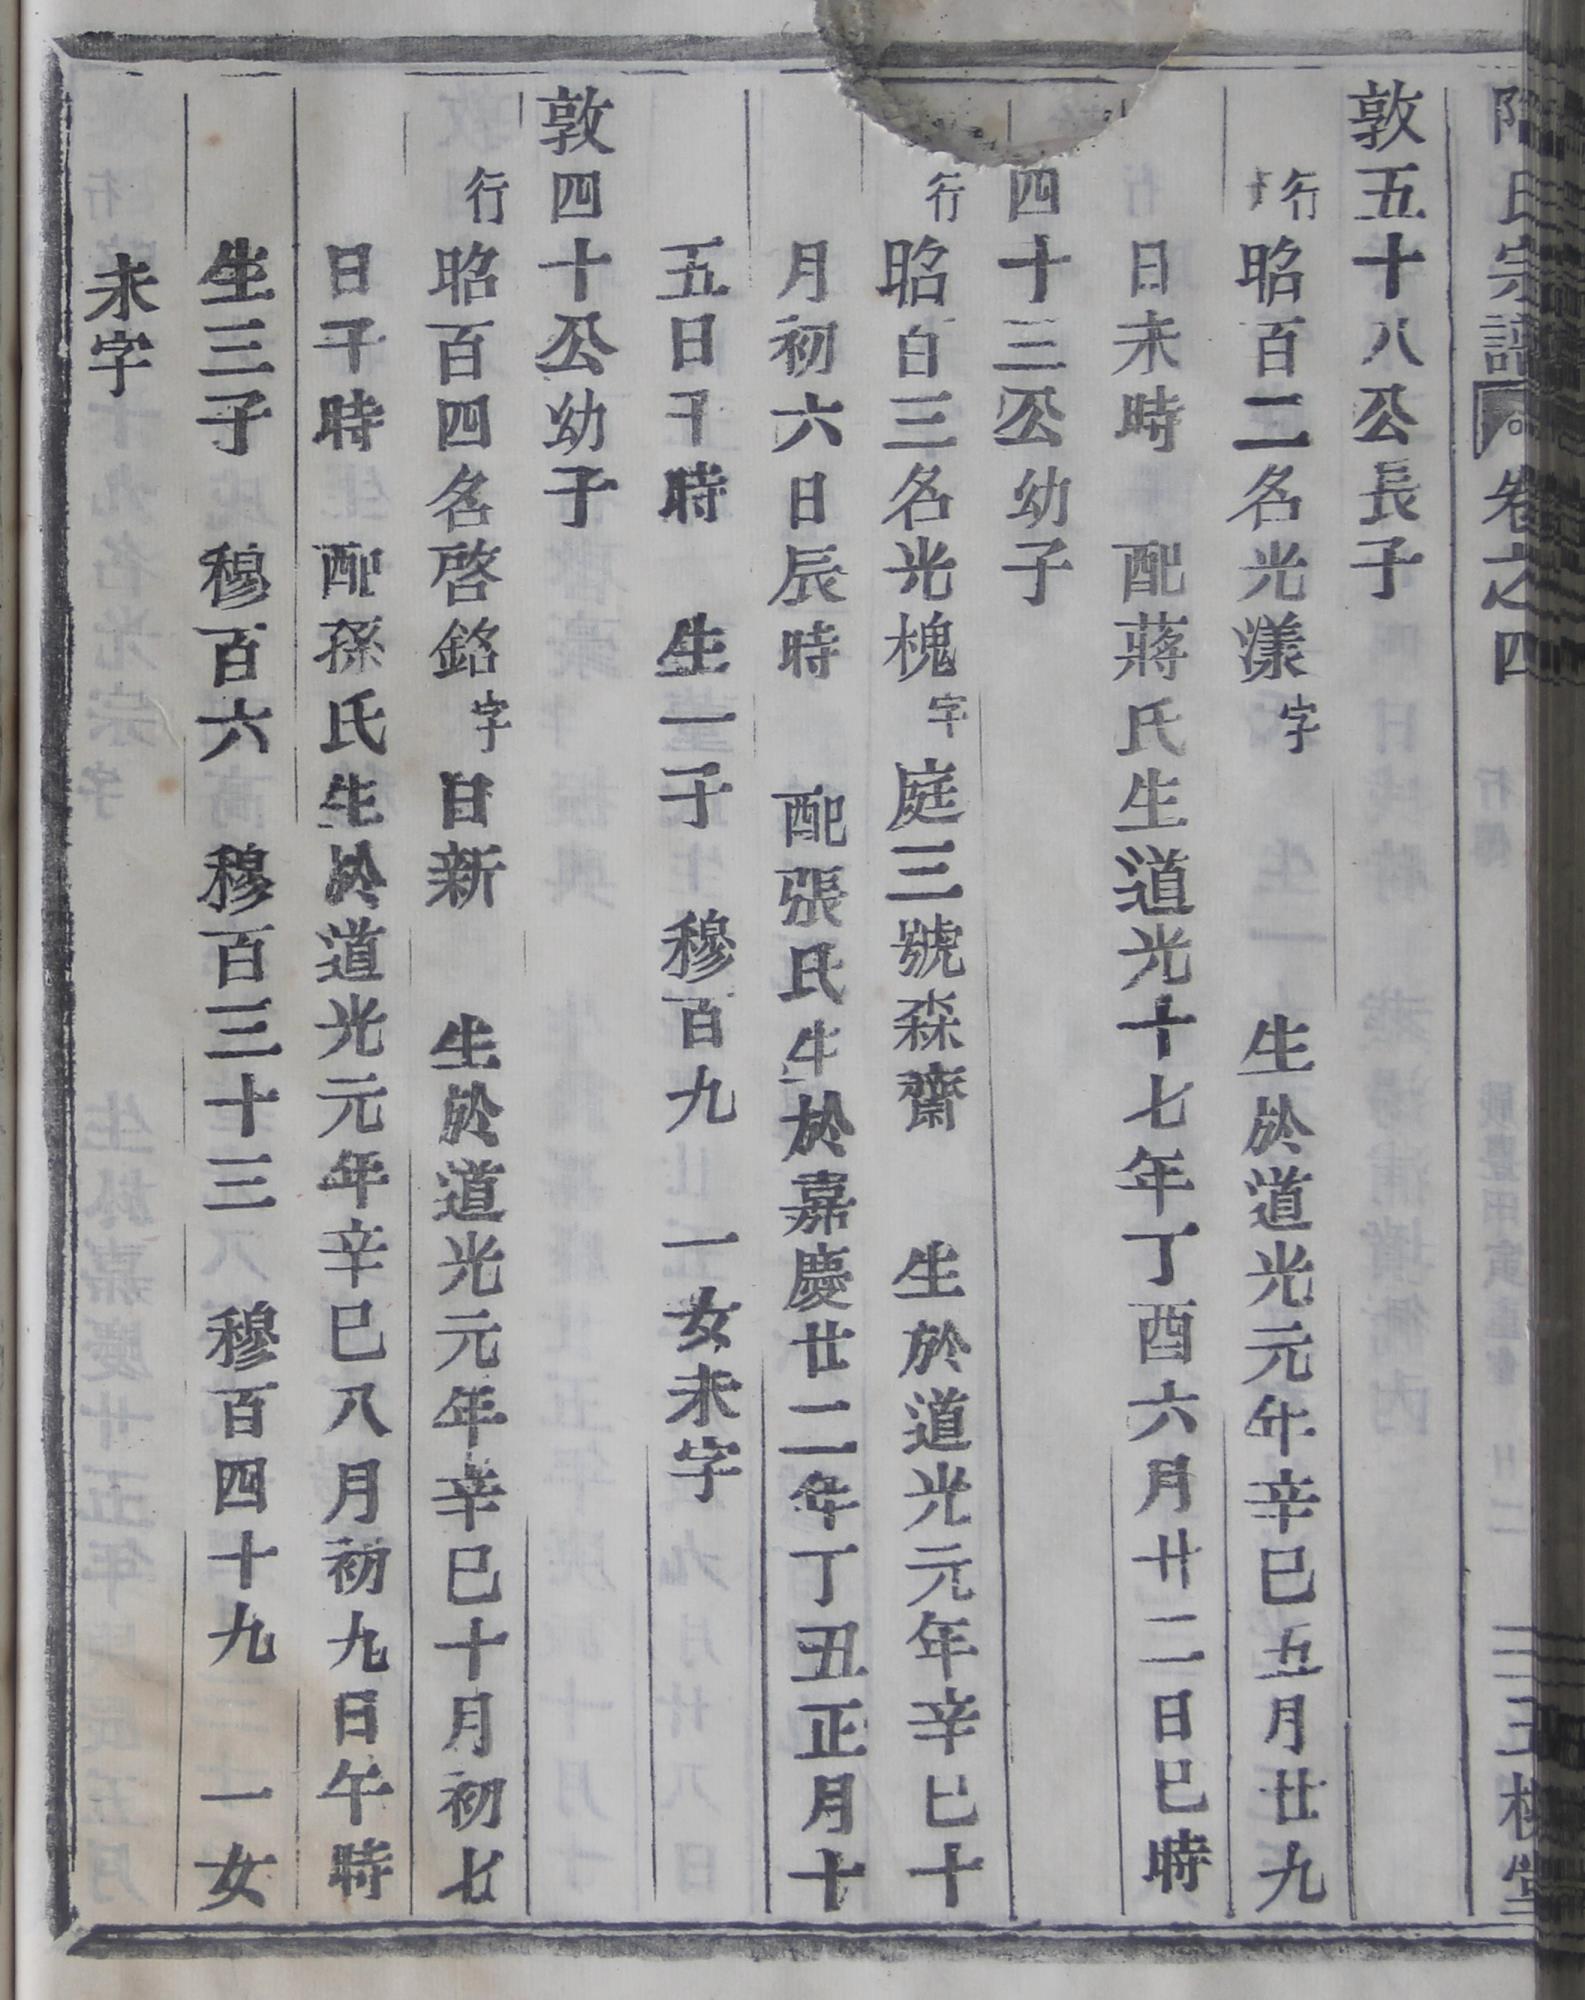 氏宗譜 卷之四 三
敦五十八公長子
行昭百二名光漾字 生於道光元年辛巳五月廿九
日未時 配蔣氏生道光十七年丁酉六月廿二日巳時
四十三公幼子
行昭百三名光槐字庭三號森齋 生於道光元年辛巳十
月初六日辰時 配張氏生於嘉慶廿二年丁丑正月十
五日子時 生一子 穆百九 一女未字
敦四十公幼子
行昭百四名啓銘字日新 生於道光元年辛巳十月初七
日子時 配孫氏生於道光元年辛巳八月初九日午時
生三子 穆百六 穆百三十三 穆百四十九 一女
未字